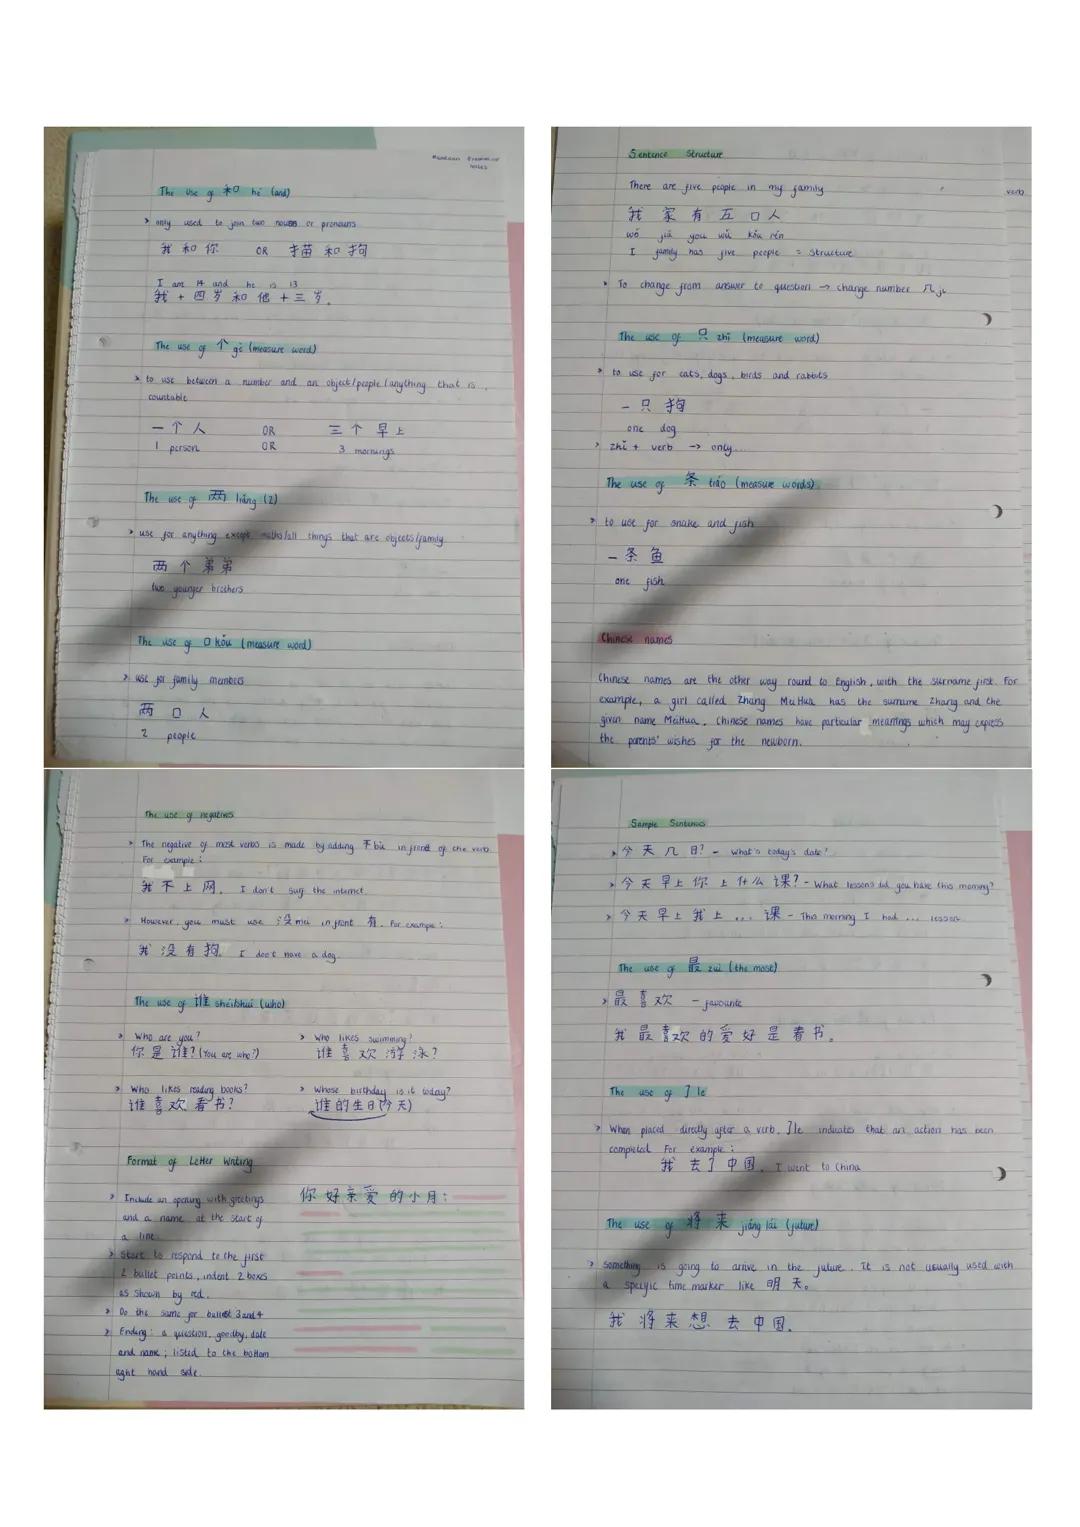 Mandarin Grammar
notes
The use of 和 hé (and)
> only used to join two nouns or pronouns
我 和 你 OR 猫 和 狗
I am 14 and he is 13
我 十 四 岁 和 他 十 三 岁。
The use of 个 gè (measure word)
> to use between a number and an object/people/anything that is
countable
一 个 人 OR 三 个 早 上
1 person OR 3 mornings
The use of 两 liǎng (2)
> use for anything except maths/all things that are objects/family
两 个 弟 弟
two younger brothers
The use of 口 kǒu (measure word)
> use for family members
两 口 人
2 people
Sentence Structure
There are five people in my family
verb
我 家 有 五 口 人
wǒ jiā yǒu wǔ kǒu rén
I family has five people = structure
> To change from answer to question → change number 几 jǐ
The use of 只 zhī (measure word)
> to use for cats, dogs, birds and rabbits
一 只 狗
one dog
> zhǐ + verb → only
The use of 条 tiáo (measure words)
> to use for snake and fish
一 条 鱼
one fish
Chinese names
Chinese names are the other way round to English, with the surname first. For
example, a girl called Zhang MeiHua has the surname Zhang and the
given name MeiHua. Chinese names have particular meanings which may express
the parents' wishes for the newborn.
The use of negatives
> The negative of most verbs is made by adding 不 bù in front of the verb.
For example:
我 不 上 网. I don't surf the internet.
> However, you must use 没 méi in front 有. For example:
我 没 有 狗. I don't have a dog.
The use of 谁 shéi/shuí (who)
> Who are you?
你 是 谁? (You are who?)
> Who likes swimming?
谁 喜 欢 游 泳?
> Who likes reading books?
谁 喜 欢 看 书?
> Whose birthday is it today?
谁 的 生 日 (今 天)
Format of Letter Writing
> Include an opening with greetings
and a name at the start of
a line.
> Start to respond to the first
2 bullet points, indent 2 boxes
as shown by red.
> Do the same for bullet 3 and 4
> Ending: a question, goodby, date
and name; listed to the bottom
right hand side.
你 好 亲 爱 的 小 月:
Sample Sentences
> 今 天 几 日? - What's today's date?
> 今 天 早 上 你 上 什 么 课? - What lessons did you have this morning?
> 今 天 早 上 我 上 ... 课 - This morning I had ... lesson
The use of 最 zuì (the most)
> 最 喜 欢 - favourite
我 最 喜 欢 的 爱 好 是 看 书。
The use of 了 le
> When placed directly after a verb, 了 le indicates that an action has been
completed. For example:
我 去 了 中 国. I went to China
The use of 将 来 jiāng lái (future)
> Something is going to arrive in the future. It is not usually used with
a specific time marker like 明 天。
我 将 来 想 去 中 国.